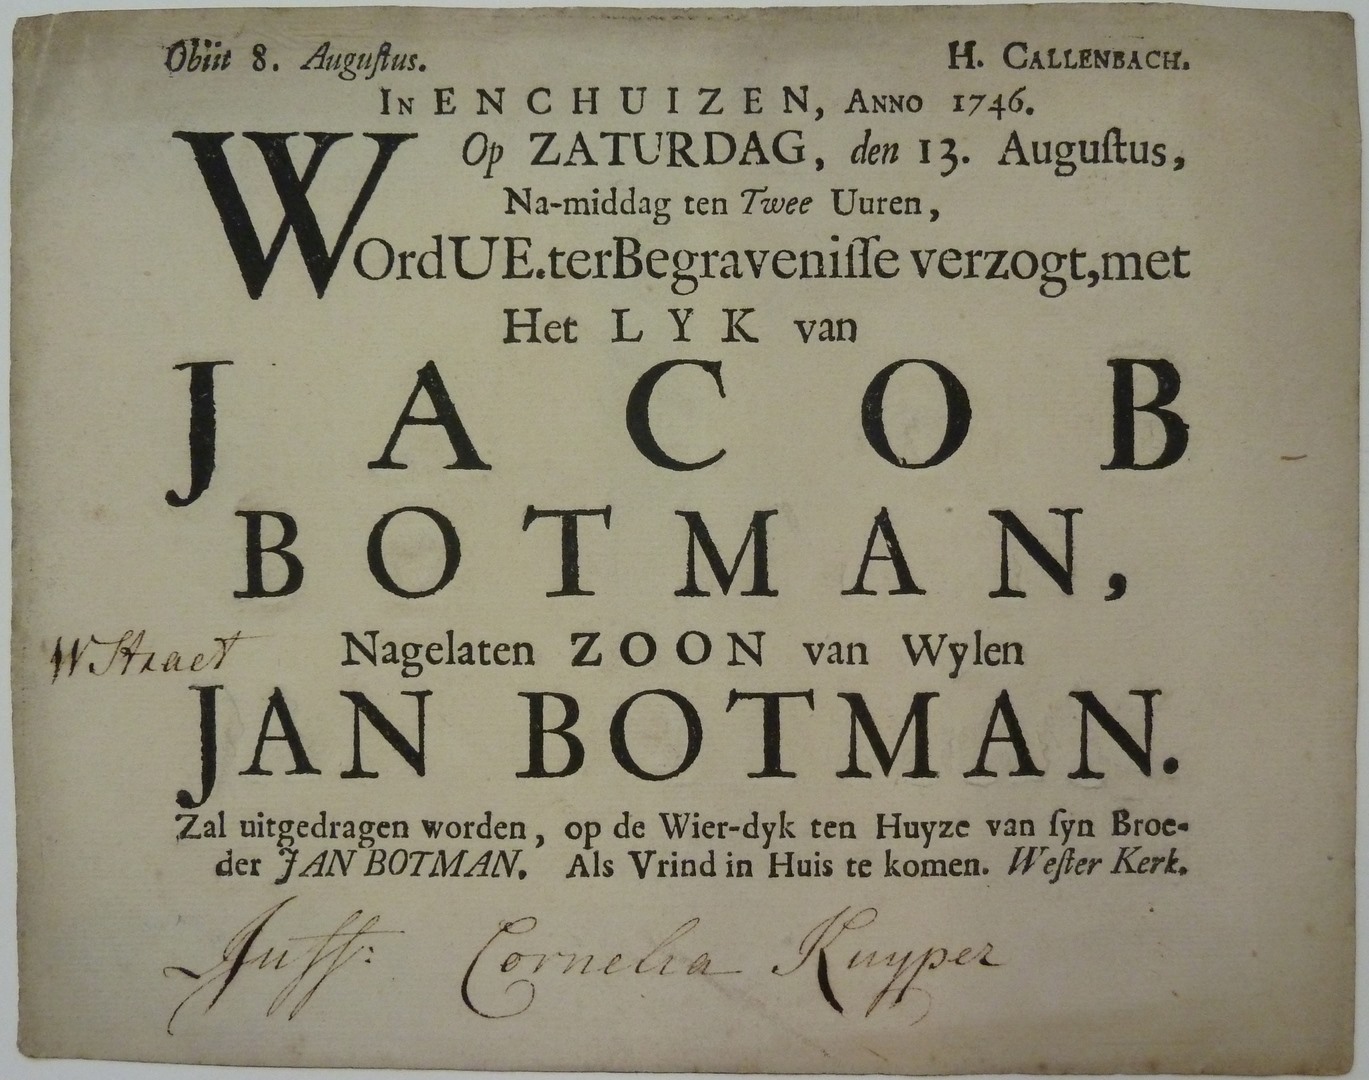 Obiit 8. Auguſtus. H. CALLENBACH.
IN ENCHUIZEN, ANNO 1746.
Op ZATURDAG, den 13. Auguſtus,
Na-middag ten Twee Uuren,
WOrd UE. ter Begraveniſſe verzogt, met
Het LYK van
JACOB
BOTMAN,
W Straet
Nagelaten ZOON van Wylen
JAN BOTMAN.
Zal uitgedragen worden, op de Wier-dyk ten Huyze van ſyn Broe-
der JAN BOTMAN. Als Vrind in Huis te komen. Weſter Kerk.
Juff: Cornelia Kuyper